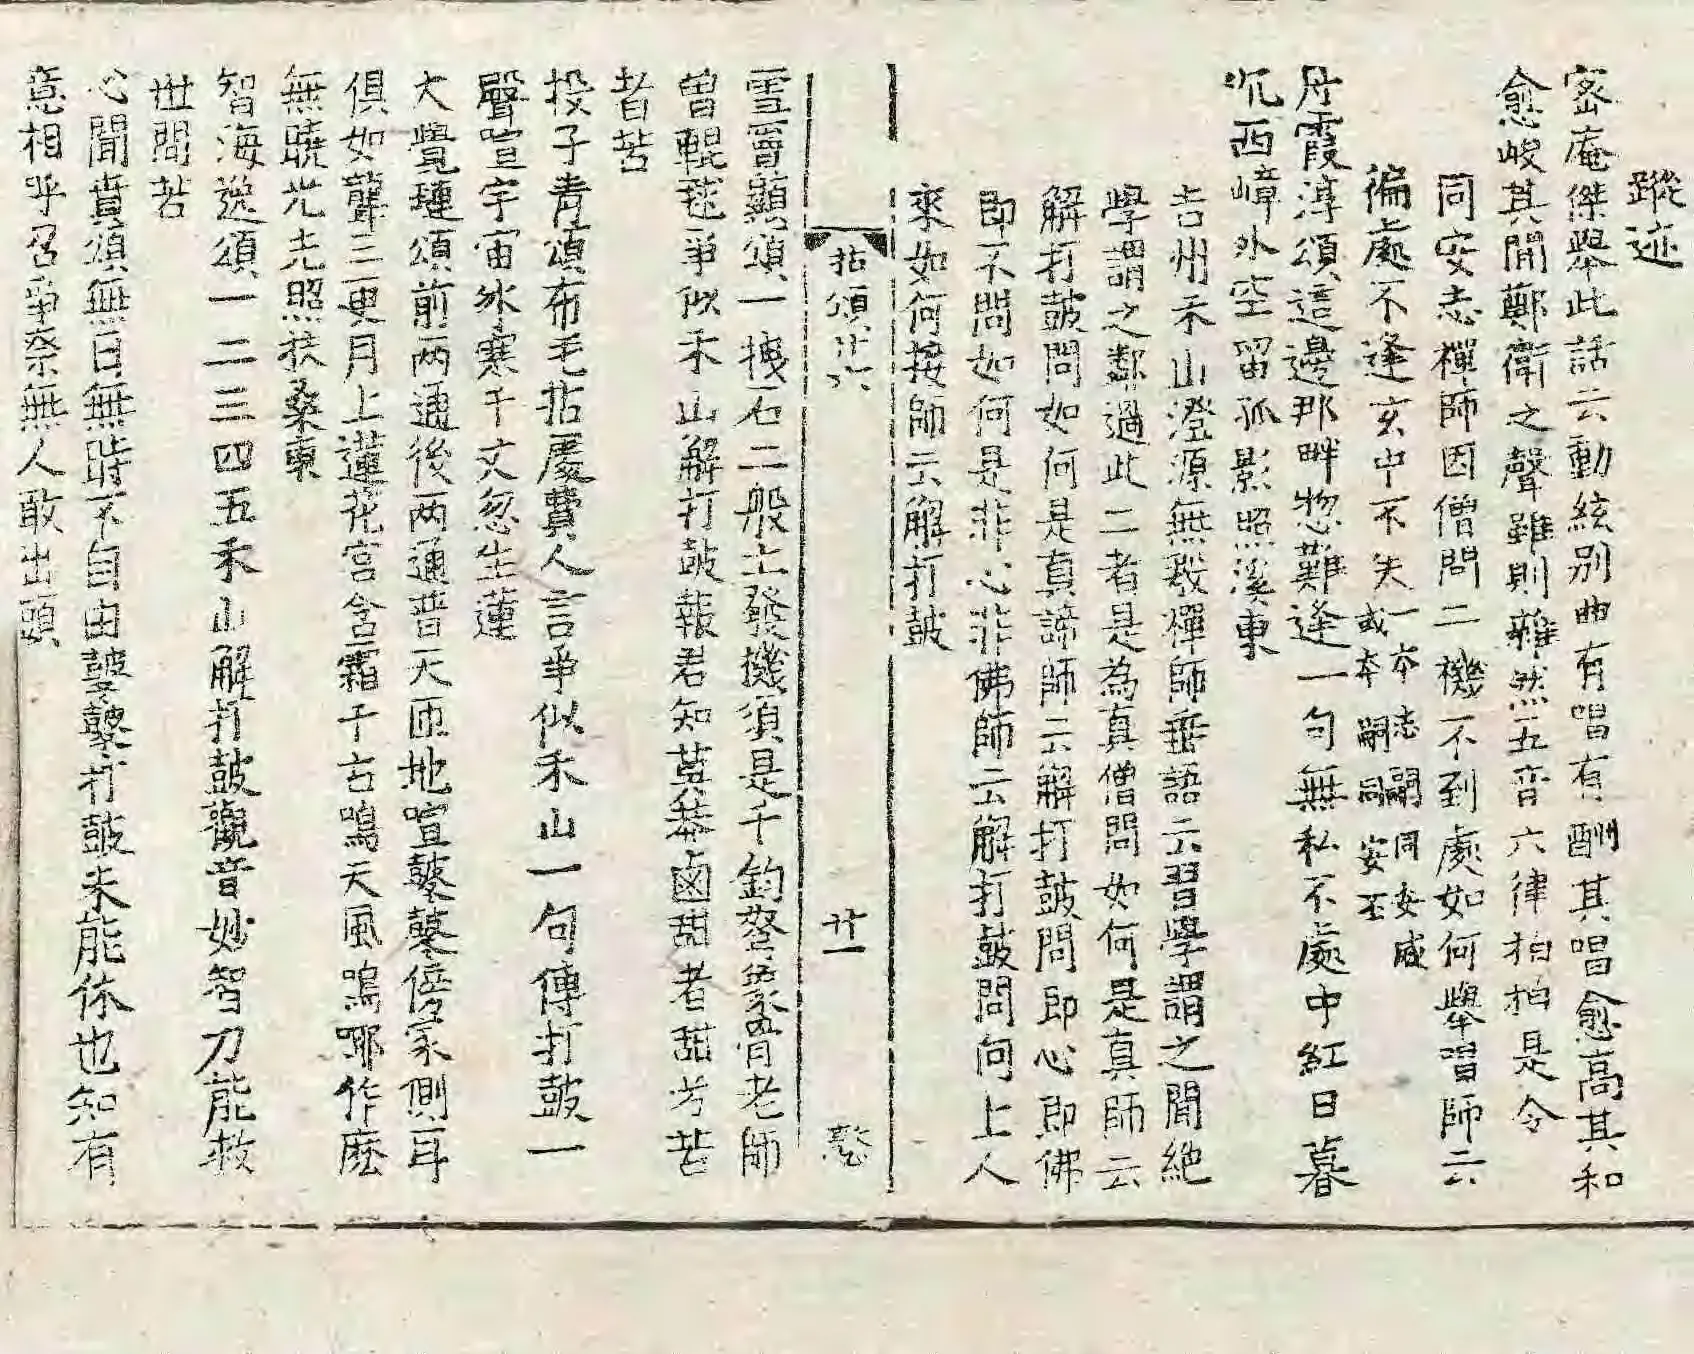 蹤迹
密庵傑舉此話云動絃别曲有唱有酬其唱愈高其和
愈峻其間鄭衛之聲雖則雜然五音六律拍拍是令
同安志禪師因僧問二機不到處如何舉唱師云
徧處不逢玄中不失一本志嗣同安威或本嗣同安丕
丹霞淳頌這邊那畔㧾難逢一句無私不處中紅日暮
沉西嶂外空留孤影照溪東
吉州禾山澄源無殷禪師垂語云習學謂之聞絶
學謂之鄰過此二者是為真僧問如何是真師云
解打皷問如何是真諦師云解打皷問即心即佛
即不問如何是非心非佛師云解打皷問向上人
來如何接師云解打皷
拈頌十六 廿一
雪竇顯頌一拽石二般土發機須是千鈞弩象骨老師
曾輥毬爭似禾山解打皷報君知莫莽鹵甜者甜兮苦
者苦
投子青頌布毛拈處費人言爭似禾山一句傳打皷一
聲喧宇宙氷寒千丈忽生蓮
大覺璉頌前两通後两通普天匝地喧鼕鼕傍家側耳
俱如聾三更月上蓮花宫含霜千古鳴天風嗚㖿作麽
無曉光光照扶桑東
智海逸頌一二三四五禾山解打皷觀音妙智刀能救
世間苦
心聞賁頌無日無時不自由鼕鼕打皷未能休也知有
意相呼召爭柰無人敢出頭